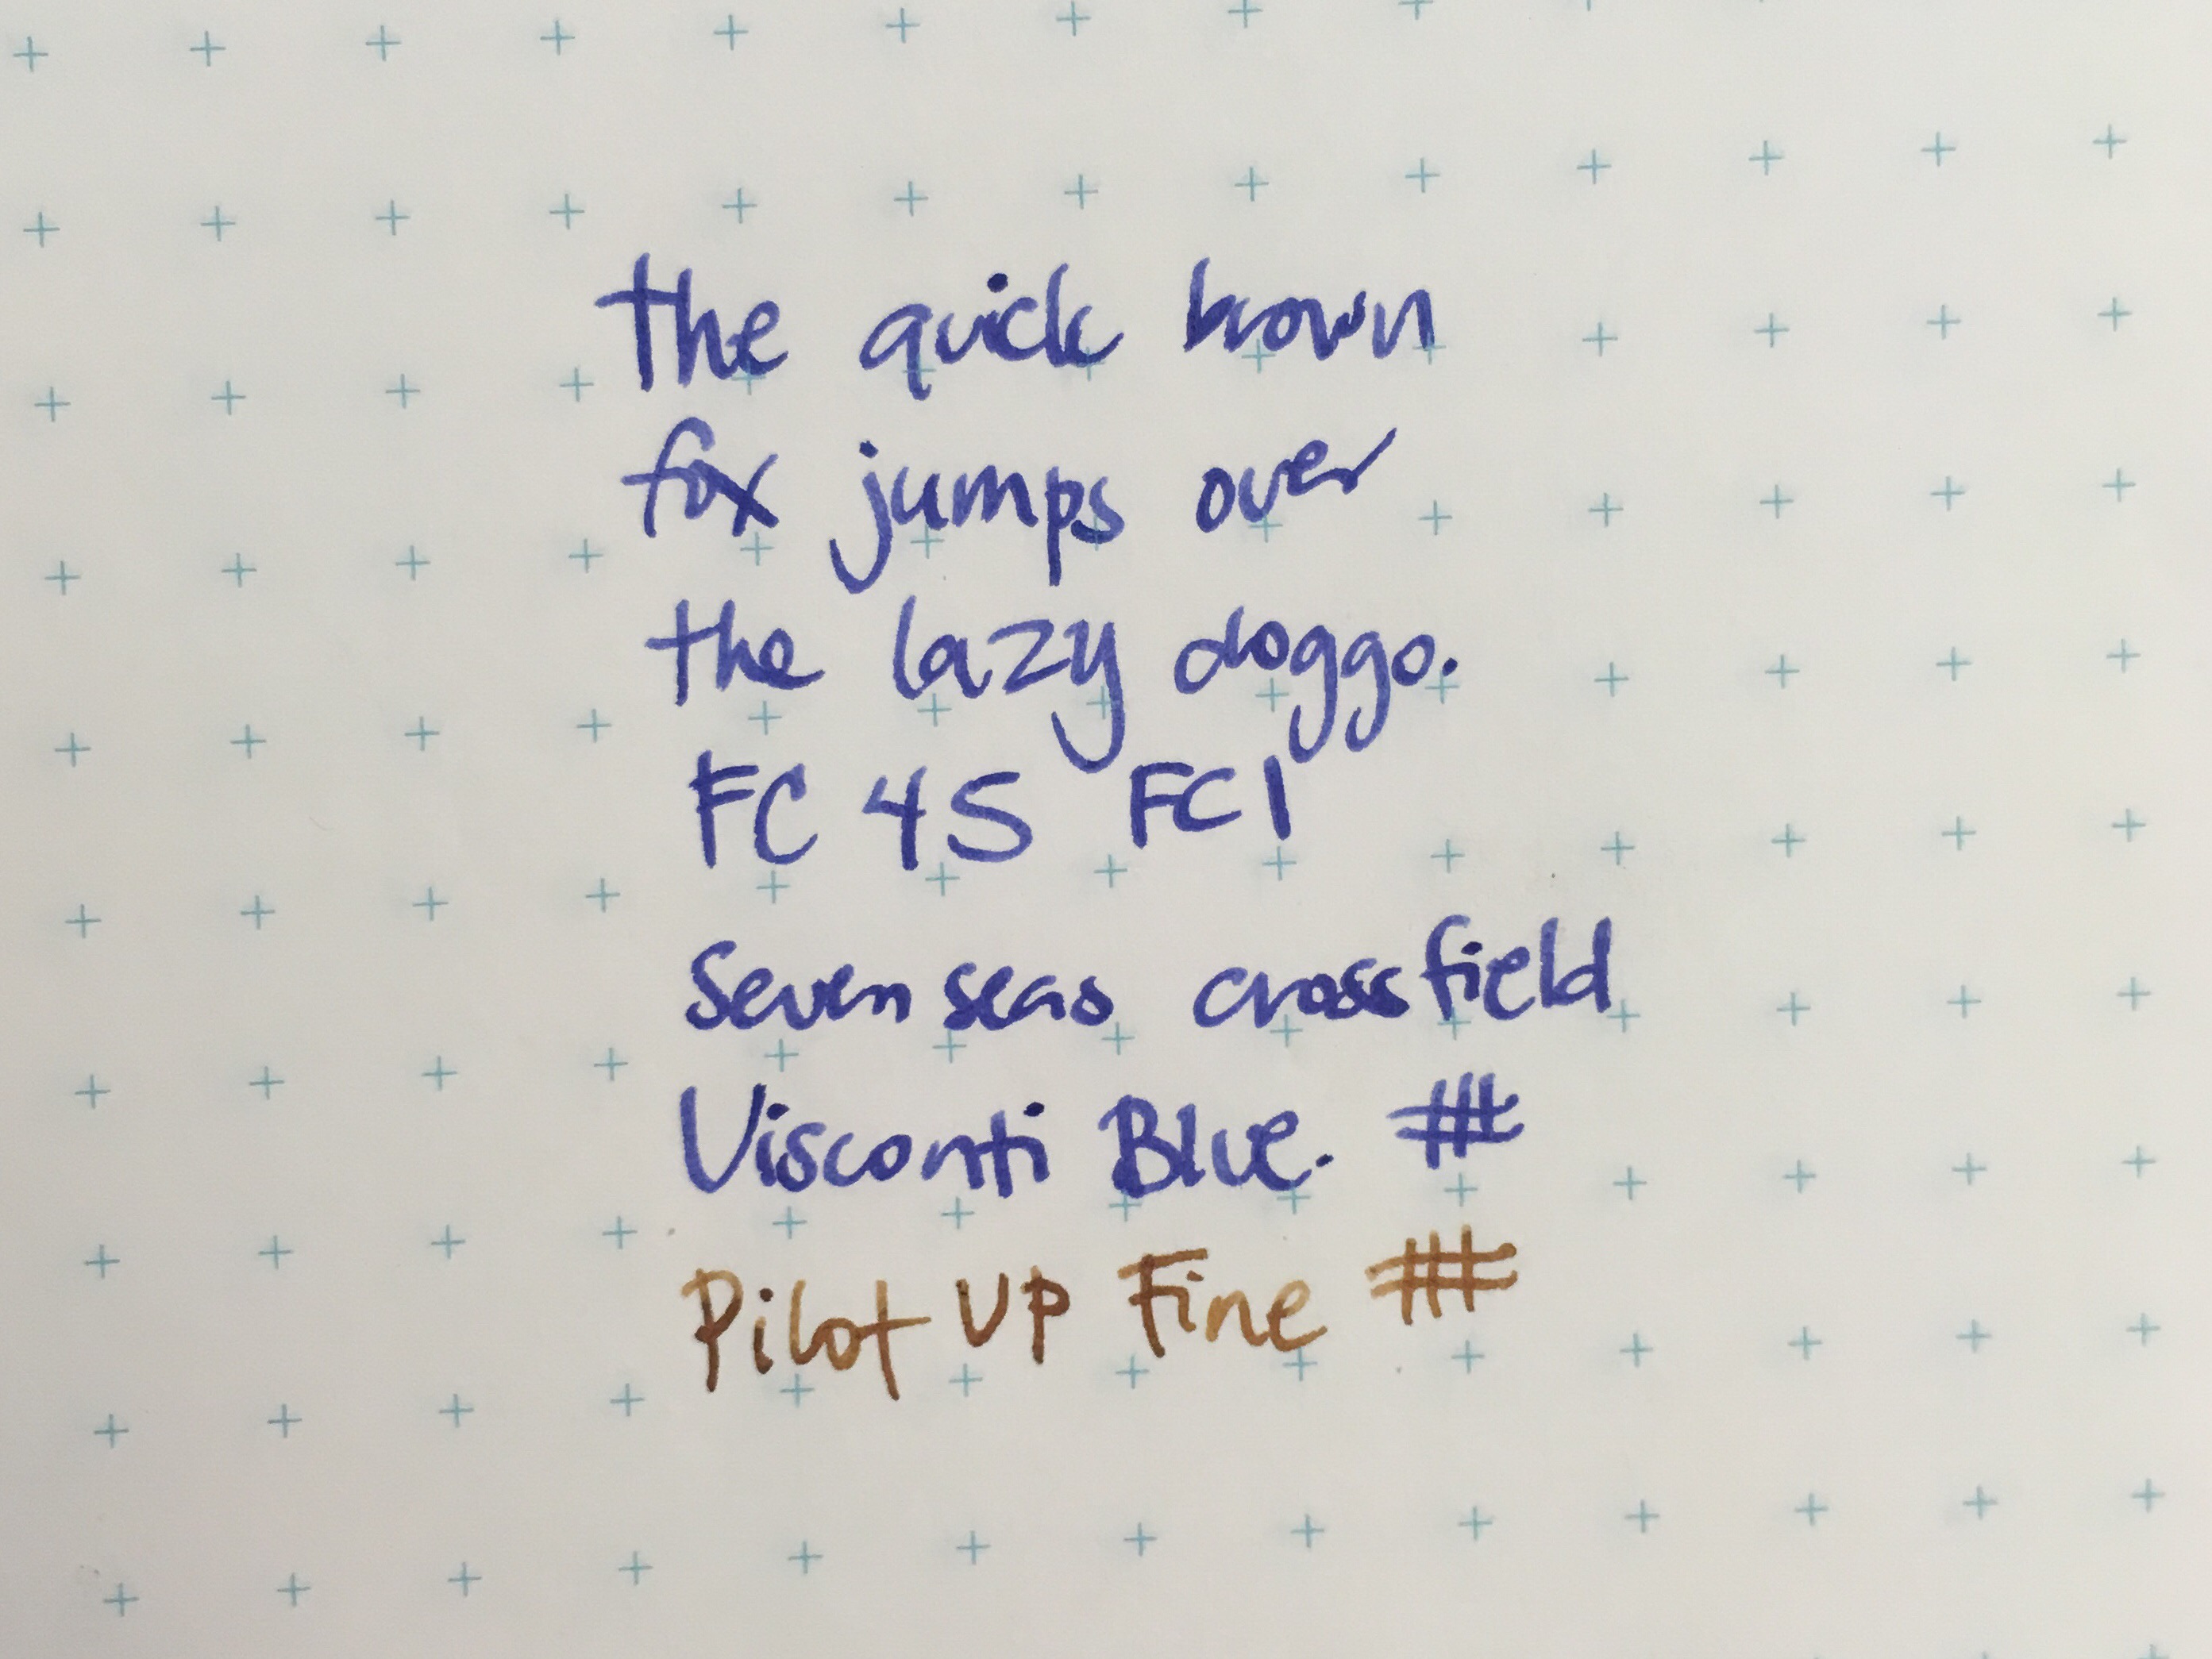 the quick brown
fox jumps over
the lazy doggo.
FC 45 FC1
Seven seas crossfield
Visconti Blue. #
Pilot UP Fine #